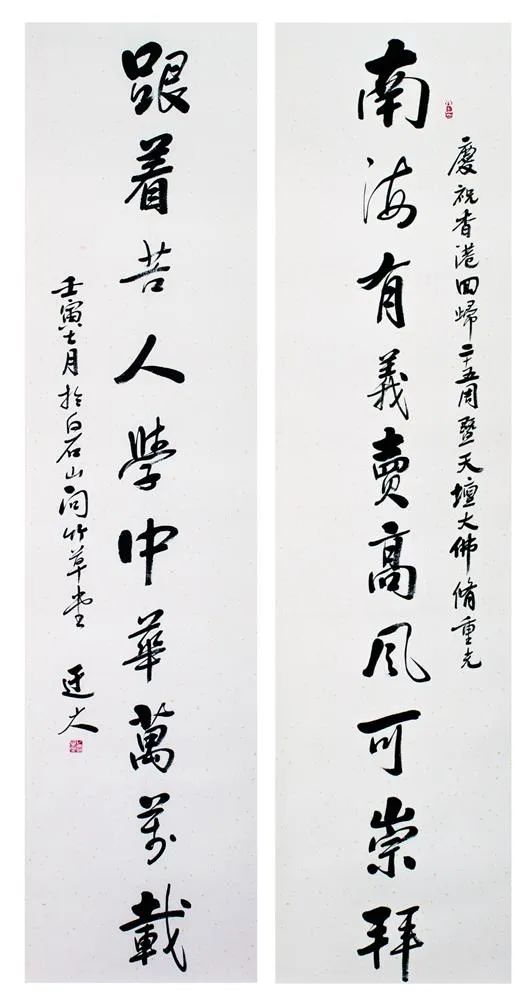 慶祝香港回歸二十五周暨天壇大佛脩重光
南海有義賣高風可崇拜
跟着苦人學中華萬萬載
壬寅七月於白石山问竹草堂